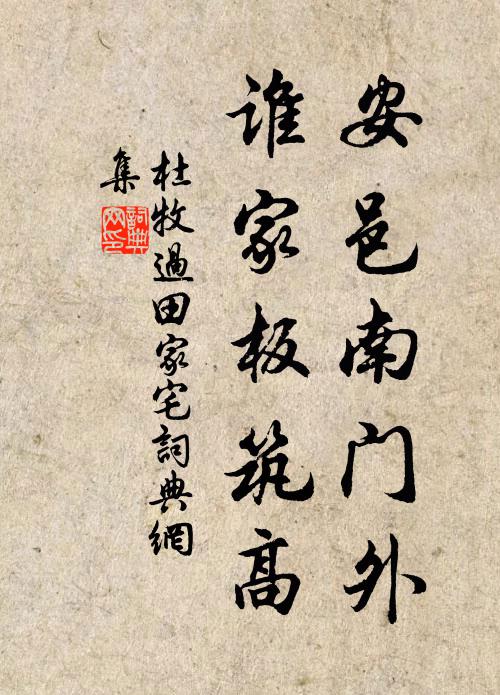 安邑南门外
谁家板筑高
杜牧過田家宅詞典網
集
詞典網印